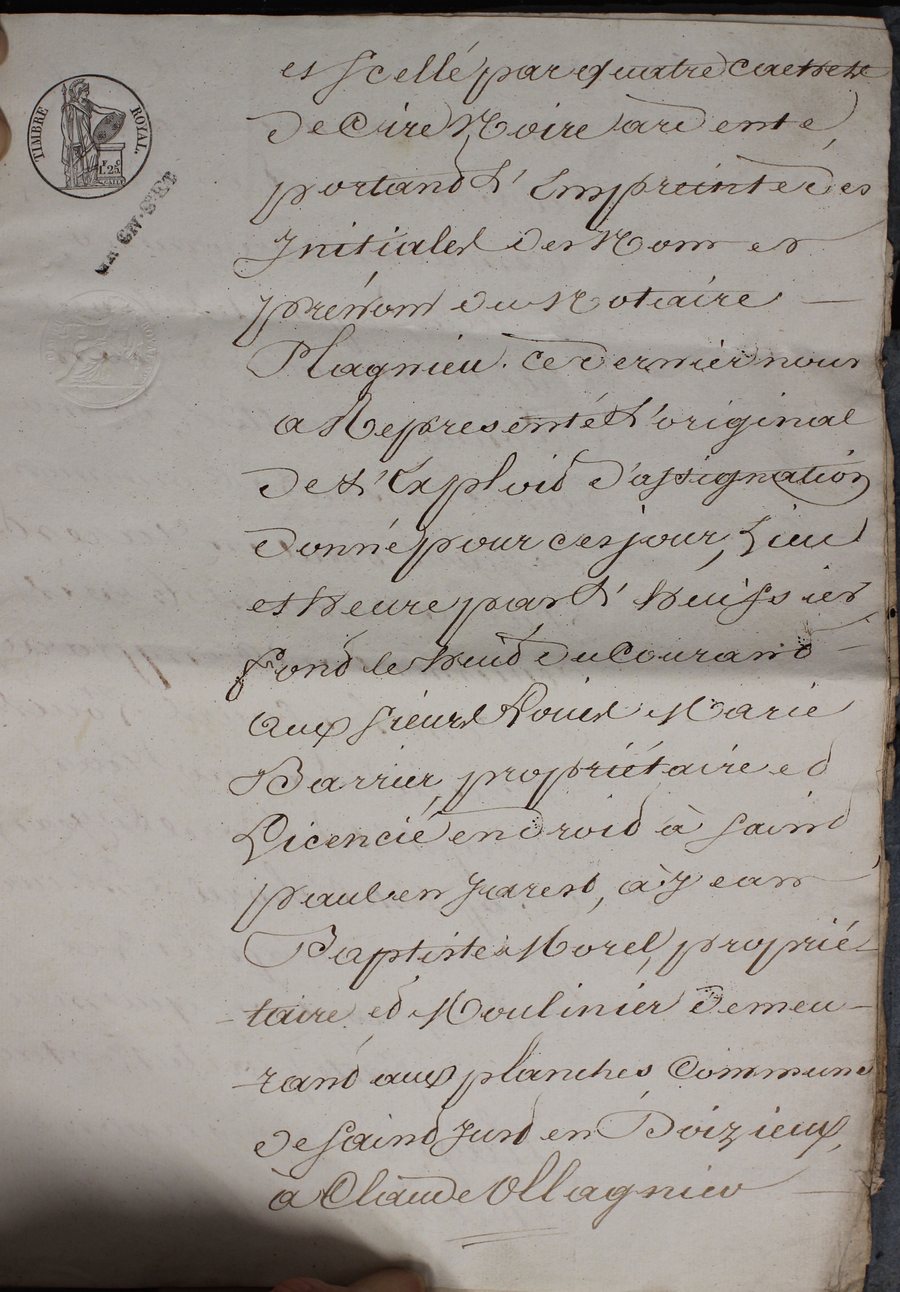 TIMBRE ROYAL.
1.F 25.C
et scellé par quatre cachets
de Cire Noire ardente,
portant l'Empreinte des
Initiales des Nom et
prénom du Notaire
Plagnieu. Ce dernier nous
a Représenté l'original
de l'Exploit d'assignation
donné pour ces jour, Lieu
et heure par l'huissier
Fond le huit du Courant
aux sieurs Louis Marie
Barrier, propriétaire et
Licencié en droit à Saint
paul en Jarest, à Jean
Baptiste Morel, proprié-
taire et Moulinier demeu-
rant aux planches Commune
de Saint Just en Doizieux,
à Claude Ollagnier